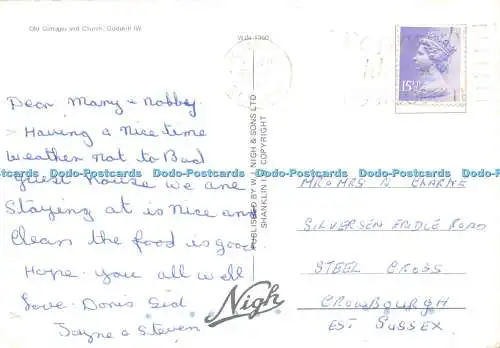 Old Cottages and Church, Godshill IW
Dear Mary & Nobby
Having a nice time
weather not to Bad
guest house we are
Staying at is nice and
clean the food is good
Hope you all well
Love Doris Sid
Jayne & Steven
PUBLISHED BY W.J. NIGH & SONS LTD
SHANKLIN COPYRIGHT
Nigh
15½P
MR & MRS N
SILVERSEN FRIDLE ROAD
STEEL CROSS
CROWBOURGH
EST SUSSEX
Dodo-Postcards Dodo-Postcards Dodo-Postcards Dodo-Postcards Dodo-Postcards Dodo-Postcards